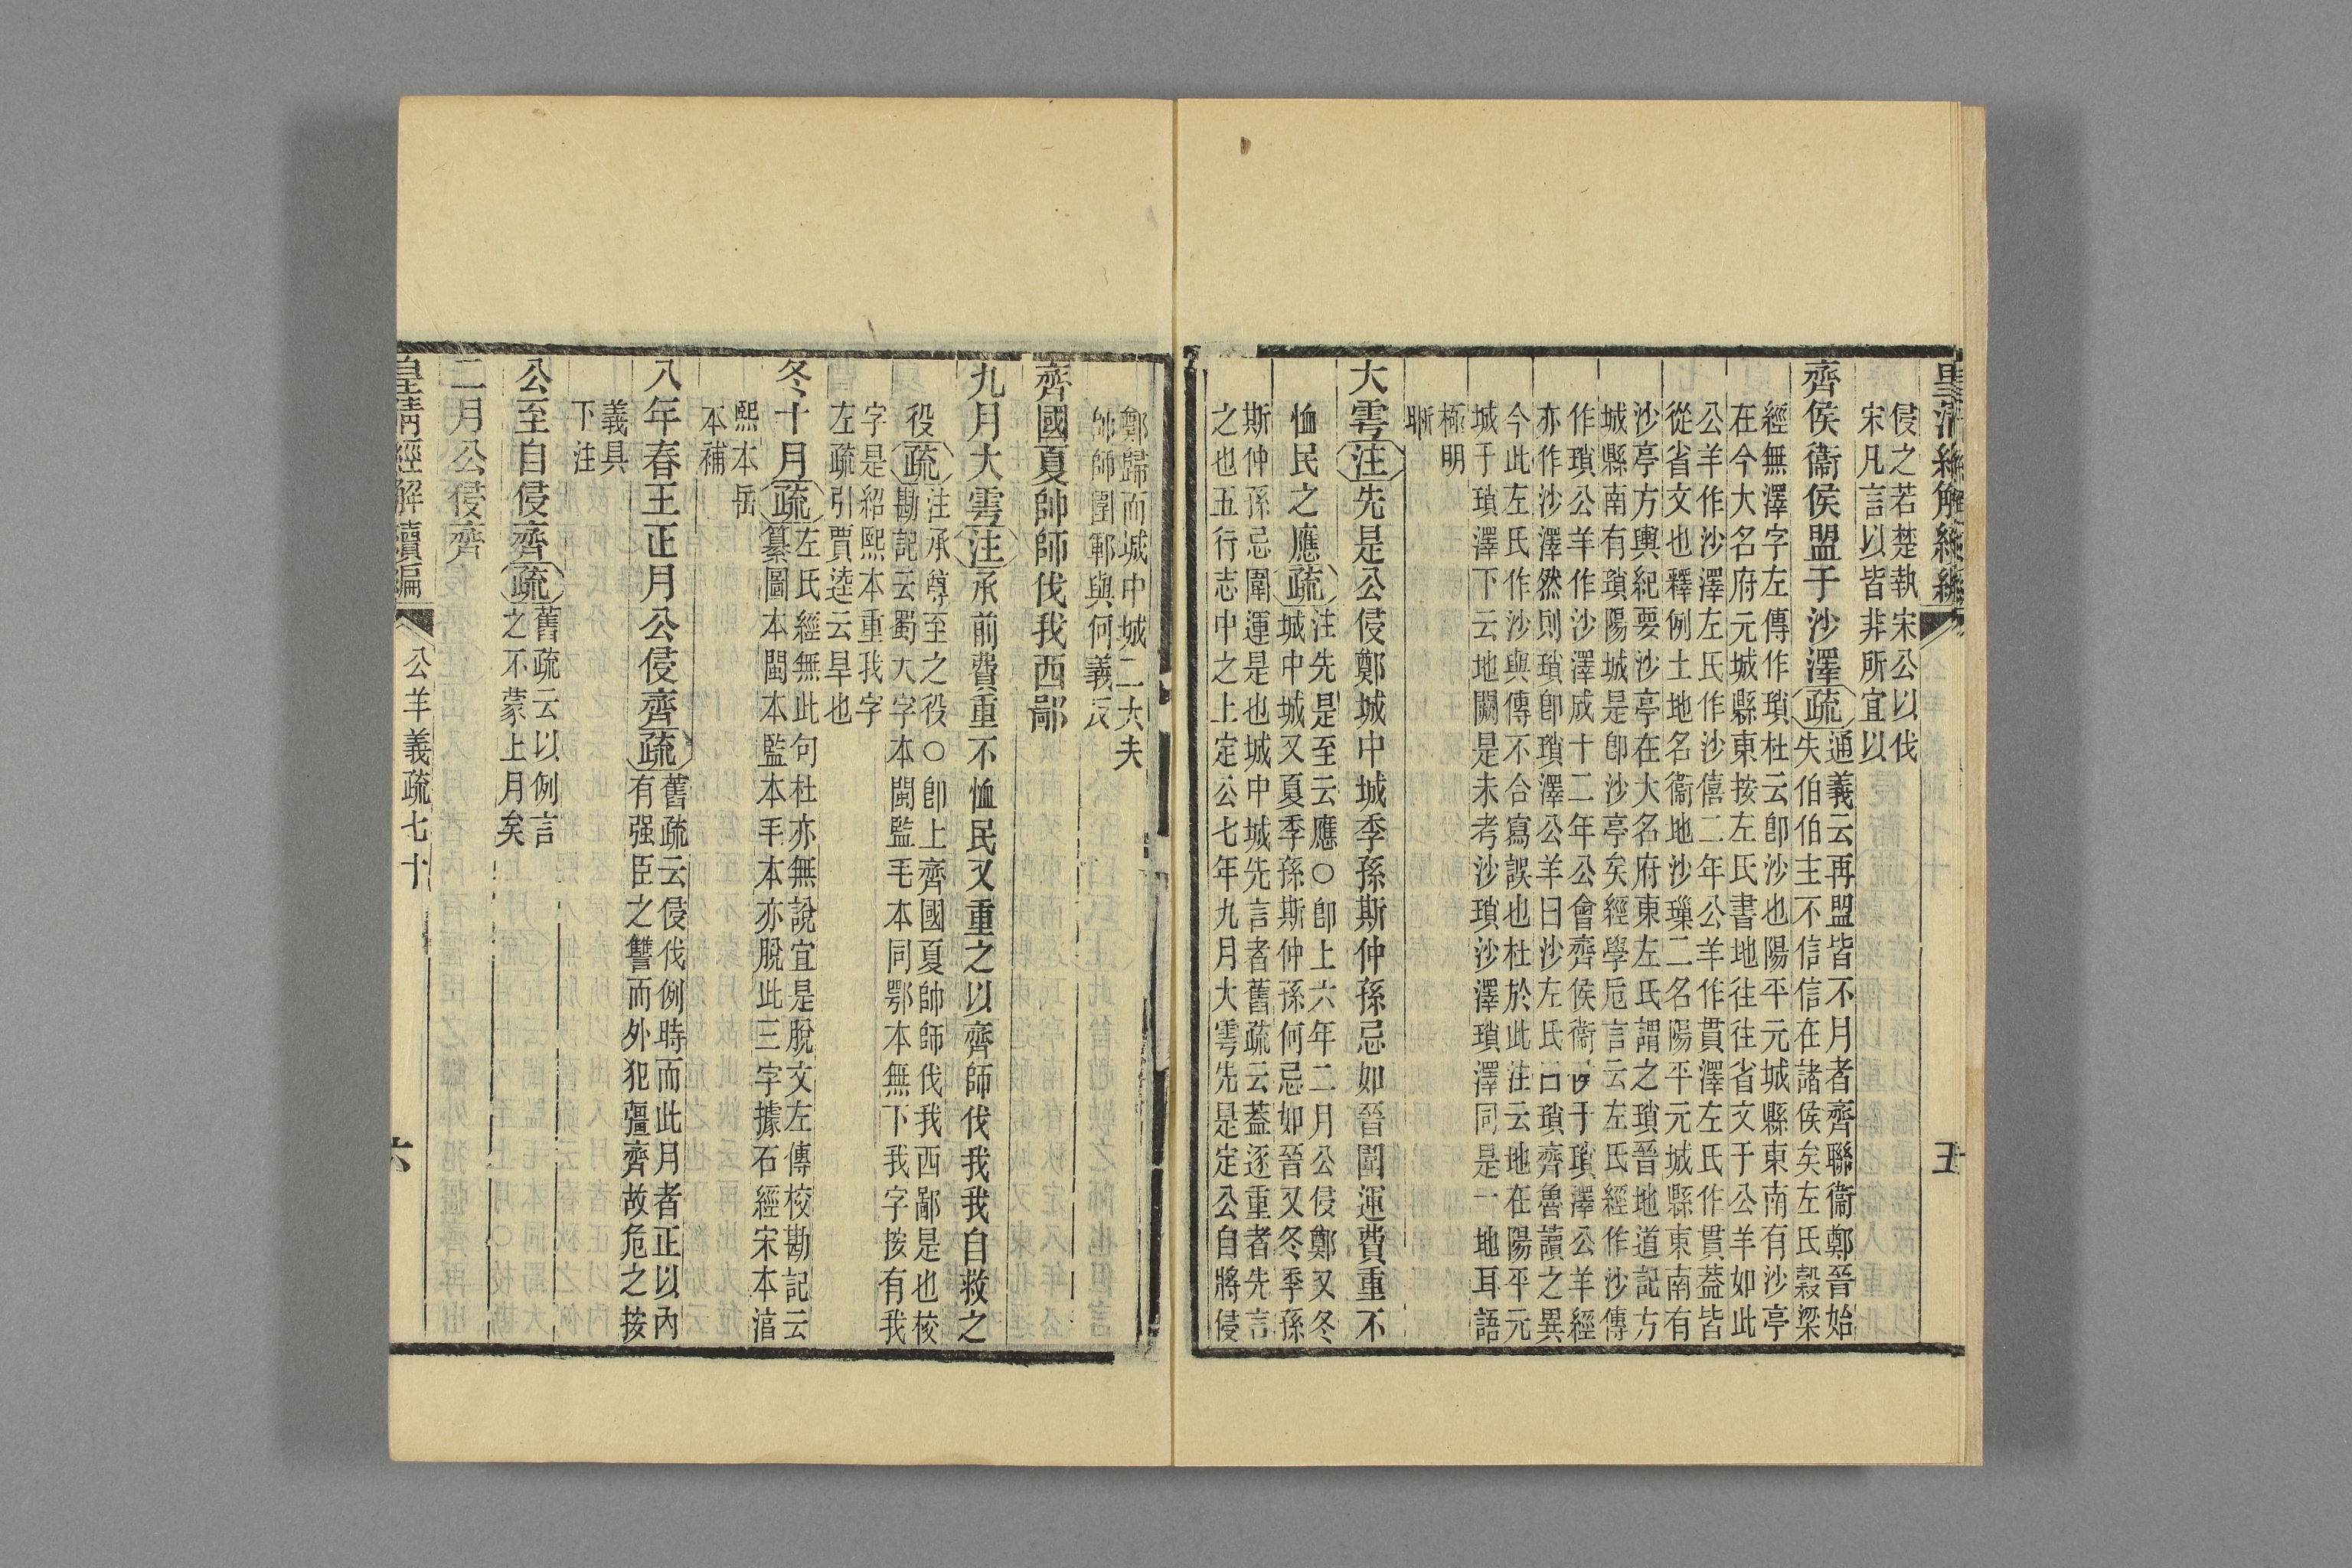 侵之若楚執宋公以伐
宋凡言以皆非所宜以
齊侯衞侯盟于沙澤疏通義云再盟皆不月者齊聯衞鄭晉始
失伯伯主不信信在諸侯矣左氏穀梁
經無澤字左傳作瑣杜云卽沙也陽平元城縣東南有沙亭
在今大名府元城縣東按左氏書地往往省文于公羊如此
公羊作沙澤左氏作沙僖二年公羊作貫澤左氏作貫葢皆
從省文也釋例土地名衞地沙瑣二名陽平元城縣東南有
沙亭方輿紀要沙亭在大名府東左氏謂之瑣晉地道記方
城縣南有瑣陽城是卽沙亭矣經學卮言云左氏經作沙傳
作瑣公羊作沙澤成十二年公會齊侯衞侯于瑣澤公羊經
亦作沙澤然則瑣卽瑣澤公羊曰沙左氏曰瑣齊魯讀之異
今此左氏作沙與傳不合寫誤也杜於此注云地在陽平元
城于瑣澤下云地闕是未考沙瑣沙澤瑣澤同是一地耳語
極明
晣
大雩注先是公侵鄭城中城季孫斯仲孫忌如晉圍運費重不
恤民之應疏注先是至云應○卽上六年二月公侵鄭又冬
城中城又夏季孫斯仲孫何忌如晉又冬季孫
斯仲孫忌圍運是也城中城先言者舊疏云葢逐重者先言
之也五行志中之上定公七年九月大雩先是定公自將侵
鄭歸而城中城二大夫
帥師圍鄆與何義反
齊國夏帥師伐我西鄙
九月大雩注承前費重不恤民又重之以齊師伐我我自救之
役疏注承前至之役○卽上齊國夏帥師伐我西鄙是也校
勘記云蜀大字本閩監毛本同鄂本無下我字按有我
字是紹熙本重我字
左疏引賈逵云旱也
冬十月疏左氏經無此句杜亦無說宜是脫文左傳校勘記云
纂圖本閩本監本毛本亦脫此三字據石經宋本淳
熙本岳
本補
八年春王正月公侵齊疏舊疏云侵伐例時而此月者正以內
有强臣之讐而外犯彊齊故危之按
義具
下注
公至自侵齊疏舊疏云以例言
之不蒙上月矣
二月公侵齊
皇淸經解續編
公羊義疏七十
六